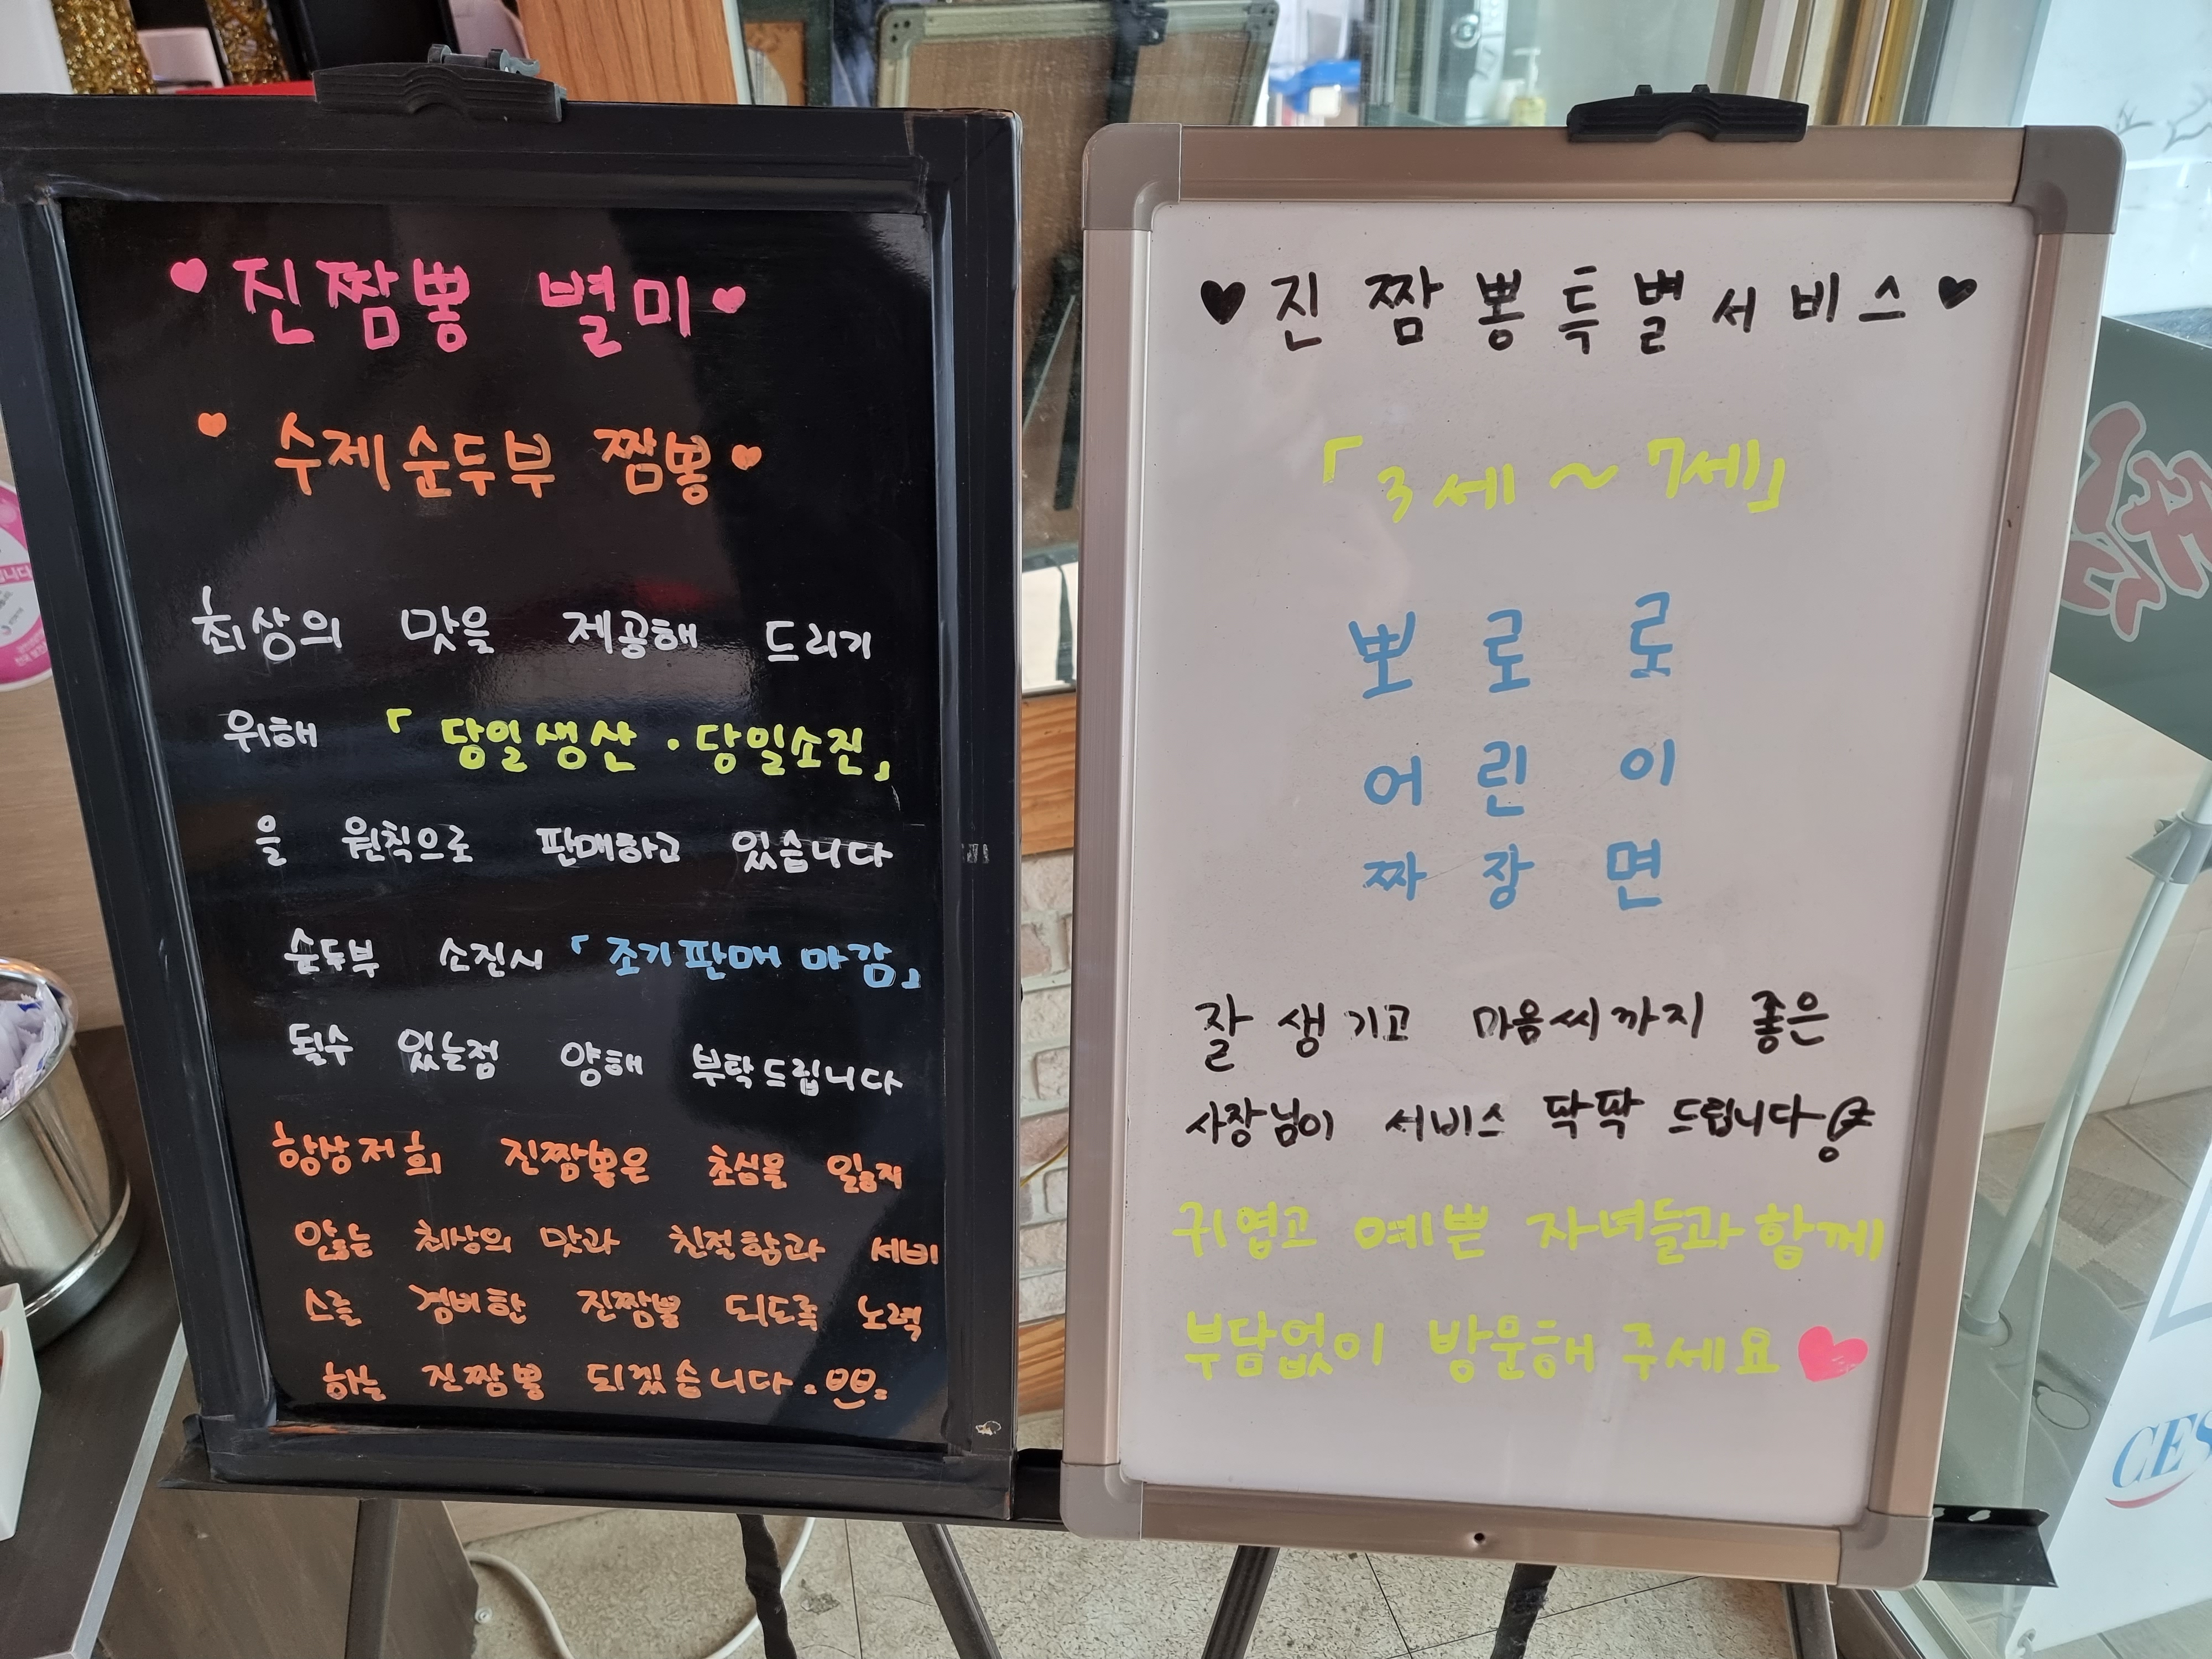 ♥진짬뽕 별미♥
♥ 수제순두부 짬뽕♥
최상의 맛을 제공해 드리기
위해 「당일생산·당일소진」
을 원칙으로 판매하고 있습니다
순두부 소진시 「조기판매 마감」
될수 있는점 양해 부탁드립니다
항상저희 진짬뽕은 초심을 잃지
않는 최상의 맛과 친절함과 서비
스를 겸비한 진짬뽕 되도록 노력
하는 진짬뽕 되겠습니다.
♥진짬뽕특별서비스♥
「3세~7세」
뽀로로
어린이
짜장면
잘생기고 마음씨까지 좋은
사장님이 서비스 팍팍 드립니다
귀엽고 예쁜 자녀들과 함께
부담없이 방문해 주세요♥
니다
CES